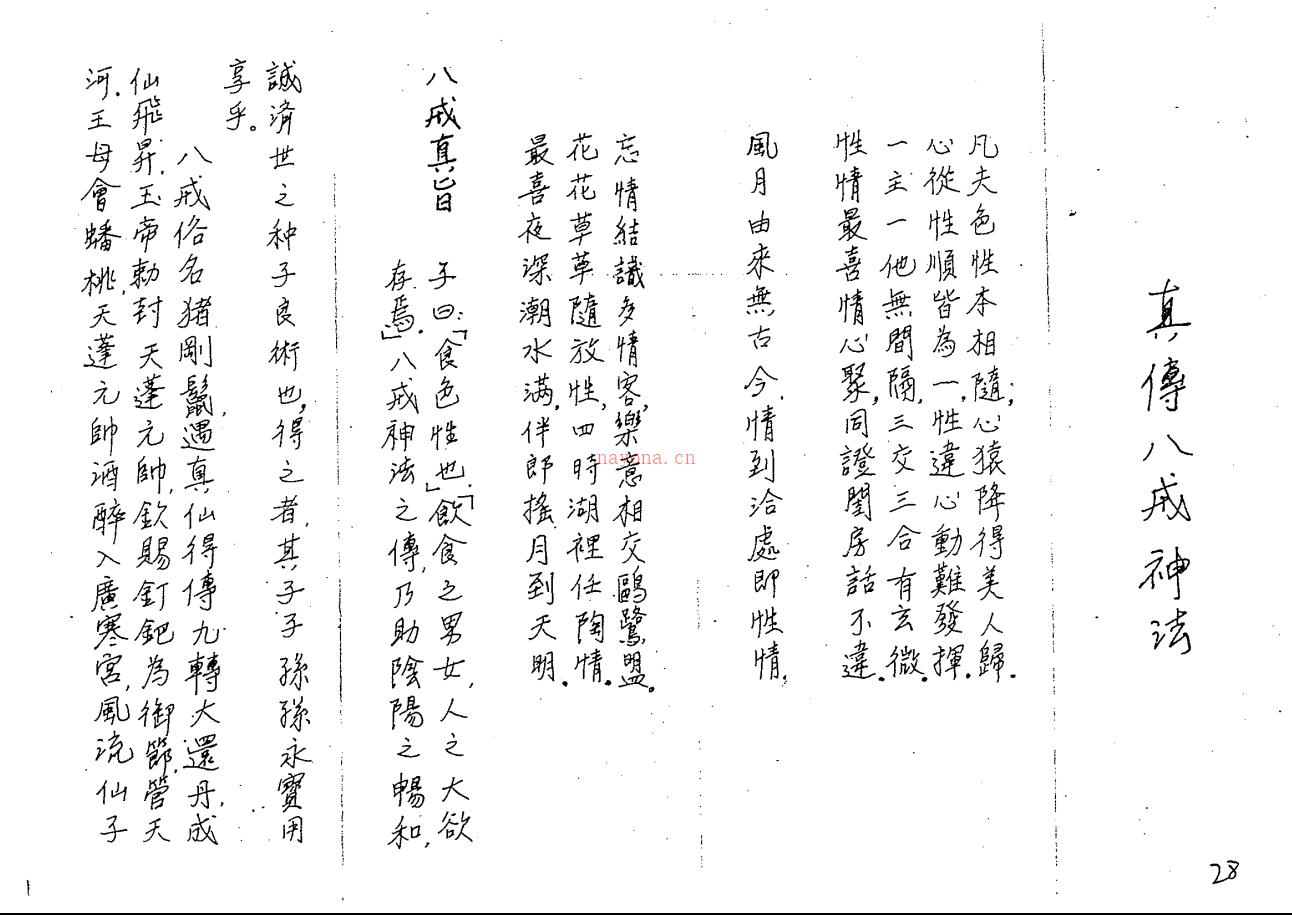 真傳八戒神法
凡夫色性本相隨；心猿降得美人歸．
心從性順皆為一，性違心動難發揮．
一主一他無間隔，三交三合有玄微．
性情最喜情心聚，同證閨房話不違．
風月由來無古今，情到洽處即性情，
忘情結識多情客，樂意相交鷗鷺盟．
花花草草隨放性，四時湖裡任陶情．
最喜夜深潮水满，伴郎搖月到天明．
八戒真旨　子曰：「食色性也」，「飲食之男女，人之大欲
存焉．」八戒神法之傳，乃助陰陽之暢和，
誠済世之种子良術也，得之者，其子子孫孫永寶用
享乎。
八戒俗名猪剛鬣，遇真仙得傳九轉大還丹，成
仙飛昇，玉帝勅封天蓬元帥，欽賜釘鈀為御節，管天
河．王母會蟠桃，天蓬元帥酒醉入廣寒宮，風流仙子
nayona.cn
28
1